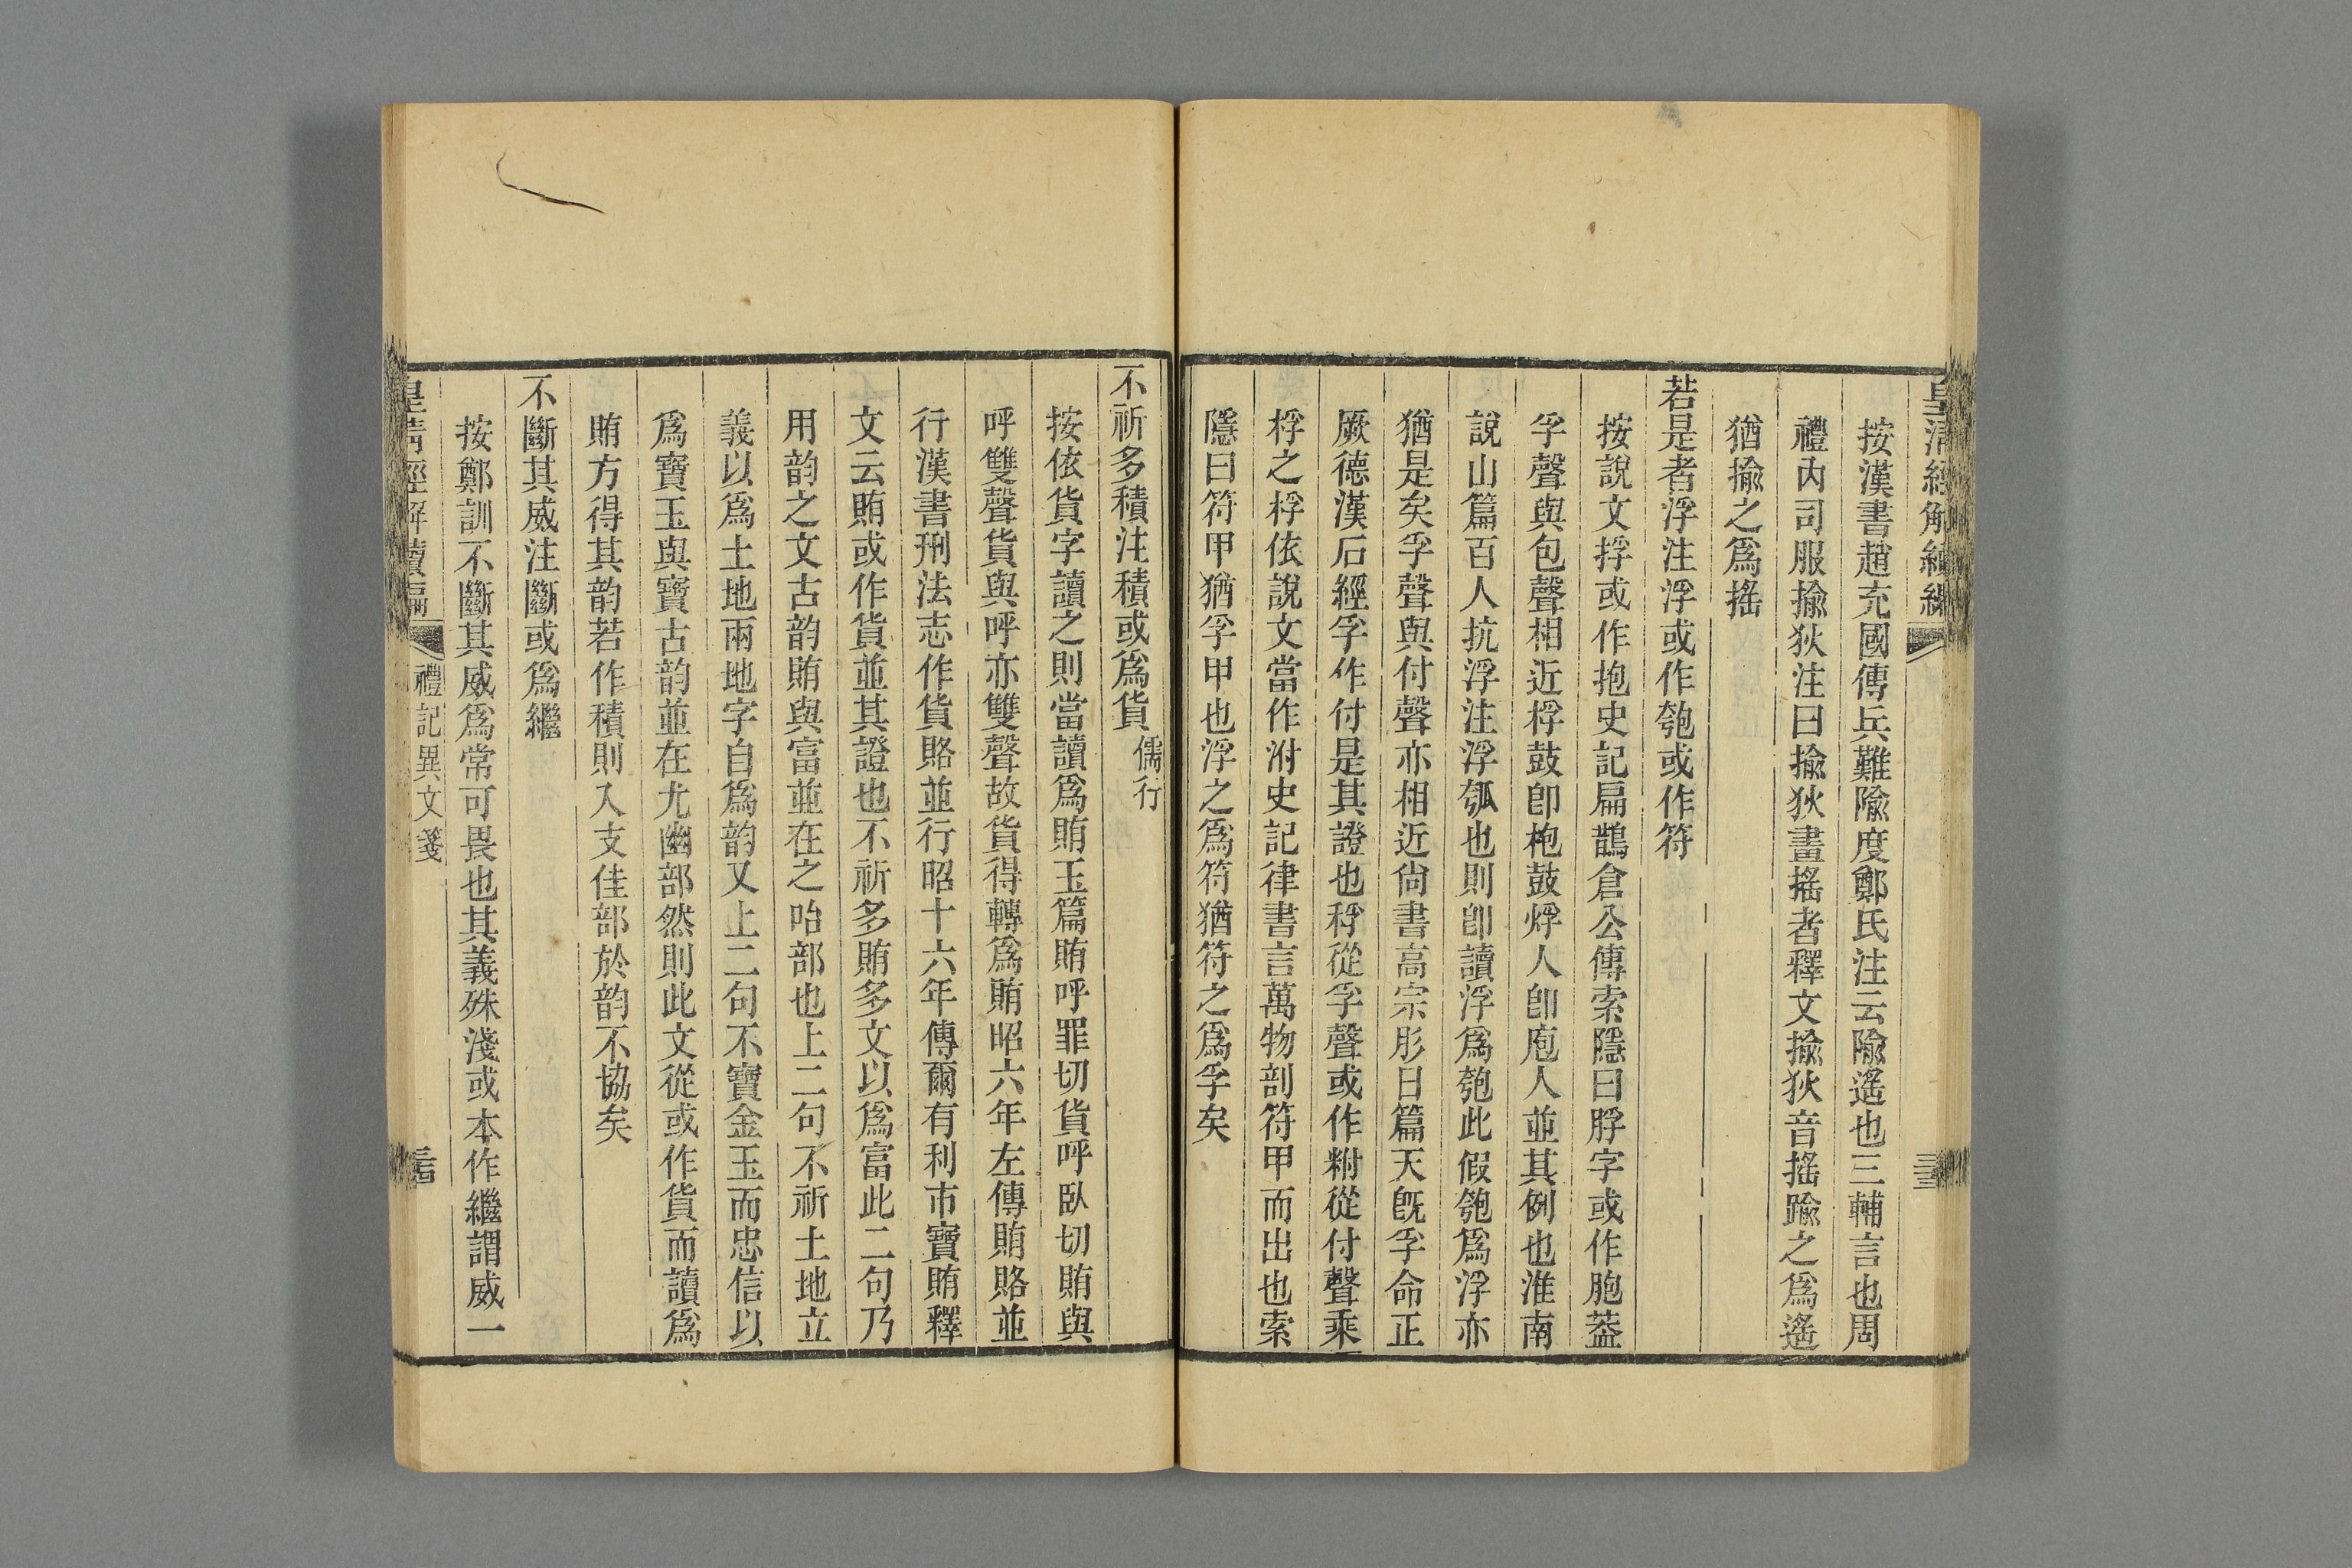 皇清經解續編
按漢書趙充國傳兵難隃度鄭氏注云隃遙也三輔言也周
禮內司服揄狄注曰揄狄畫搖者釋文揄狄音搖踰之爲遙
猶揄之爲搖
若是者浮注浮或作匏或作符
按說文捊或作抱史記扁鵲倉公傳索隱曰脬字或作胞葢
孚聲與包聲相近桴鼓卽枹鼓烰人卽庖人並其例也淮南
說山篇百人抗浮注浮瓠也則卽讀浮爲匏此假匏爲浮亦
猶是矣孚聲與付聲亦相近尙書高宗肜日篇天旣孚命正
厥德漢石經孚作付是其證也稃從孚聲或作粰從付聲乘
桴之桴依說文當作泭史記律書言萬物剖符甲而出也索
隱曰符甲猶孚甲也浮之爲符猶符之爲孚矣
不祈多積注積或爲貨 儒行
按依貨字讀之則當讀爲賄玉篇賄呼罪切貨呼臥切賄與
呼雙聲貨與呼亦雙聲故貨得轉爲賄昭六年左傳賄賂並
行漢書刑法志作貨賂並行昭十六年傳爾有利市寶賄釋
文云賄或作貨並其證也不祈多賄多文以爲富此二句乃
用韵之文古韵賄與富並在之咍部也上二句不祈土地立
義以爲土地兩地字自爲韵又上二句不寶金玉而忠信以
爲寶玉與寶古韵並在尤幽部然則此文從或作貨而讀爲
賄方得其韵若作積則入支佳部於韵不協矣
不斷其威注斷或爲繼
按鄭訓不斷其威爲常可畏也其義殊淺或本作繼謂威一
皇清經解續編 禮記異文箋